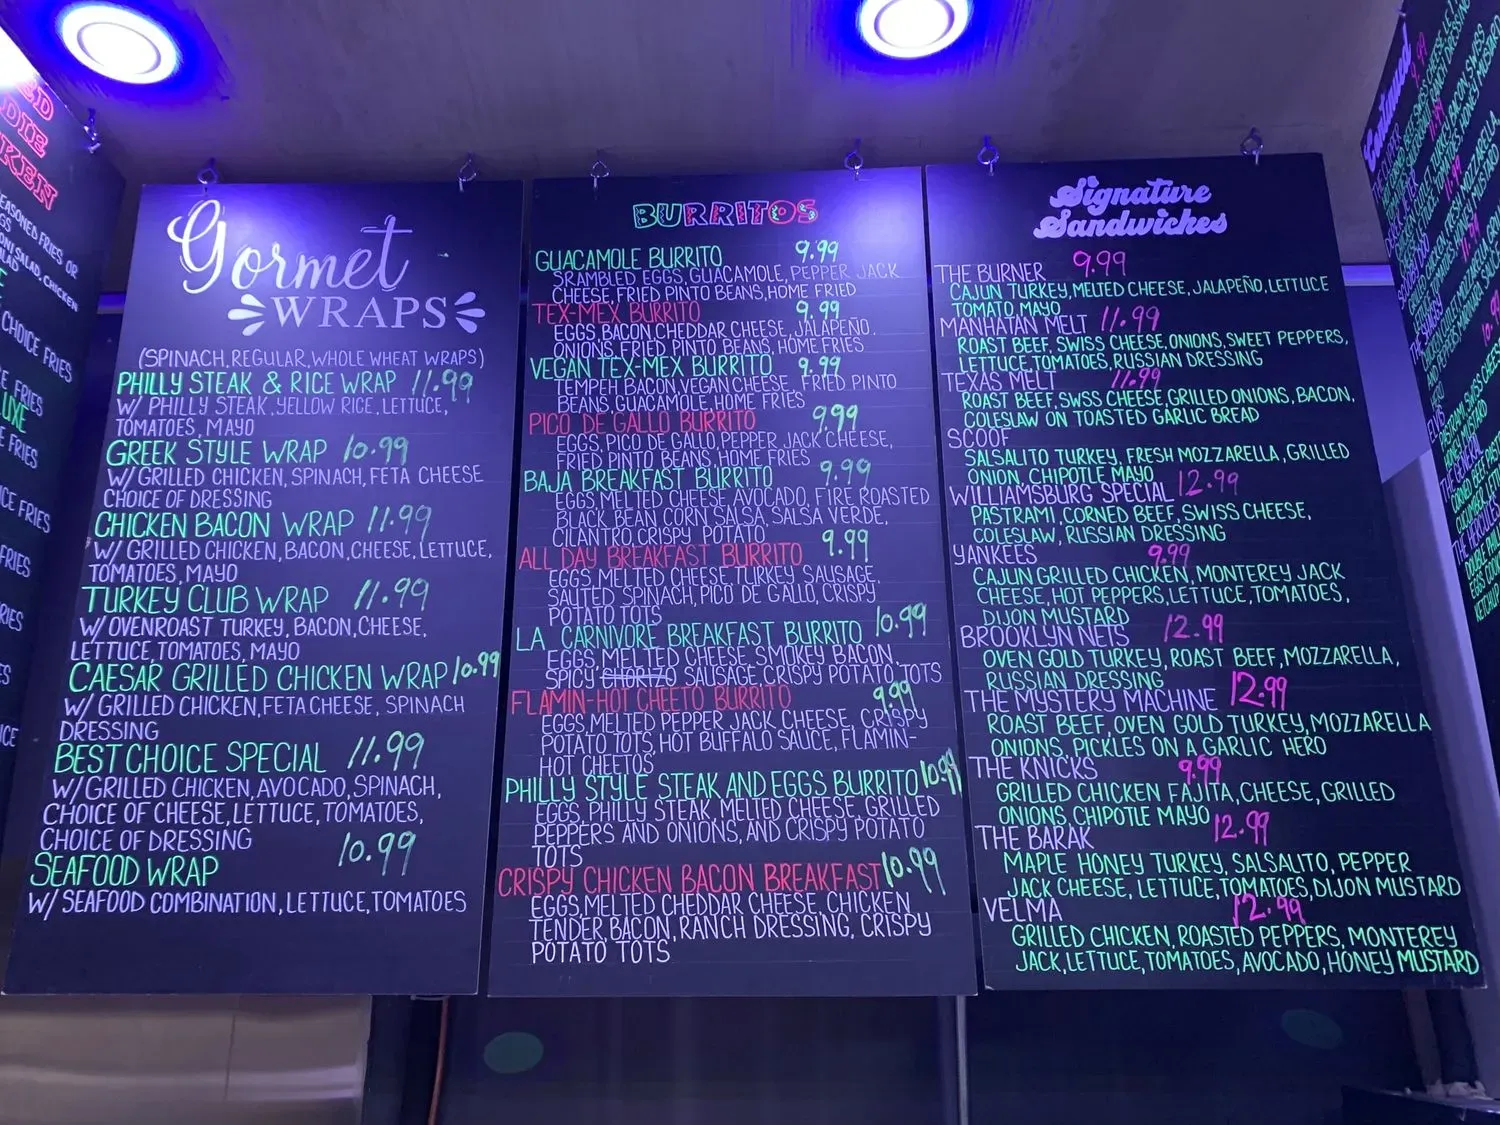 Gormet
WRAPS
(SPINACH, REGULAR, WHOLE WHEAT WRAPS)
PHILLY STEAK & RICE WRAP 11.99
W/ PHILLY STEAK, YELLOW RICE, LETTUCE,
TOMATOES, MAYO
GREEK STYLE WRAP 10.99
W/ GRILLED CHICKEN, SPINACH, FETA CHEESE
CHOICE OF DRESSING
CHICKEN BACON WRAP 11.99
W/ GRILLED CHICKEN, BACON, CHEESE, LETTUCE,
TOMATOES, MAYO
TURKEY CLUB WRAP 11.99
W/ OVENROAST TURKEY, BACON, CHEESE,
LETTUCE, TOMATOES, MAYO
CAESAR GRILLED CHICKEN WRAP 10.99
W/ GRILLED CHICKEN, FETA CHEESE, SPINACH
DRESSING
BEST CHOICE SPECIAL 11.99
W/ GRILLED CHICKEN, AVOCADO, SPINACH,
CHOICE OF CHEESE, LETTUCE, TOMATOES,
CHOICE OF DRESSING
SEAFOOD WRAP 10.99
W/ SEAFOOD COMBINATION, LETTUCE, TOMATOES
BURRITOS
GUACAMOLE BURRITO 9.99
SRAMBLED EGGS, GUACAMOLE, PEPPER JACK
CHEESE, FRIED PINTO BEANS, HOME FRIED
TEX-MEX BURRITO 9.99
EGGS, BACON, CHEDDAR CHEESE, JALAPEÑO,
ONIONS, FRIED PINTO BEANS, HOME FRIES
VEGAN TEX-MEX BURRITO 9.99
TEMPEH BACON, VEGAN CHEESE, FRIED PINTO
BEANS, GUACAMOLE, HOME FRIES
PICO DE GALLO BURRITO 9.99
EGGS, PICO DE GALLO, PEPPER JACK CHEESE,
FRIED PINTO BEANS, HOME FRIES
BAJA BREAKFAST BURRITO 9.99
EGGS, MELTED CHEESE, AVOCADO, FIRE ROASTED
BLACK BEAN CORN SALSA, SALSA VERDE,
CILANTRO, CRISPY POTATO
ALL DAY BREAKFAST BURRITO 9.99
EGGS, MELTED CHEESE, TURKEY SAUSAGE,
SAUTED SPINACH, PICO DE GALLO, CRISPY
POTATO TOTS
LA CARNIVORE BREAKFAST BURRITO 10.99
EGGS, MELTED CHEESE SMOKEY BACON,
SPICY CHORIZO SAUSAGE, CRISPY POTATO TOTS
FLAMIN-HOT CHEETO BURRITO 9.99
EGGS, MELTED PEPPER JACK CHEESE, CRISPY
POTATO TOTS, HOT BUFFALO SAUCE, FLAMIN-
HOT CHEETOS
PHILLY STYLE STEAK AND EGGS BURRITO 10.99
EGGS, PHILLY STEAK, MELTED CHEESE, GRILLED
PEPPERS AND ONIONS, AND CRISPY POTATO
TOTS
CRISPY CHICKEN BACON BREAKFAST 10.99
EGGS, MELTED CHEDDAR CHEESE, CHICKEN
TENDER, BACON, RANCH DRESSING, CRISPY
POTATO TOTS
Signature
Sandwiches
THE BURNER 9.99
CAJUN TURKEY, MELTED CHEESE, JALAPEÑO, LETTUCE
TOMATO, MAYO
MANHATAN MELT 11.99
ROAST BEEF, SWISS CHEESE, ONIONS, SWEET PEPPERS,
LETTUCE, TOMATOES, RUSSIAN DRESSING
TEXAS MELT 11.99
ROAST BEEF, SWSS CHEESE, GRILLED ONIONS, BACON,
COLESLAW ON TOASTED GARLIC BREAD
SCOOF
SALSALITO TURKEY, FRESH MOZZARELLA, GRILLED
ONION, CHIPOTLE MAYO
WILLIAMSBURG SPECIAL 12.99
PASTRAMI, CORNED BEEF, SWISS CHEESE,
COLESLAW, RUSSIAN DRESSING
YANKEES 9.99
CAJUN GRILLED CHICKEN, MONTEREY JACK
CHEESE, HOT PEPPERS, LETTUCE, TOMATOES,
DIJON MUSTARD
BROOKLYN NETS 12.99
OVEN GOLD TURKEY, ROAST BEEF, MOZZARELLA,
RUSSIAN DRESSING
THE MYSTERY MACHINE 12.99
ROAST BEEF, OVEN GOLD TURKEY, MOZZARELLA
ONIONS, PICKLES ON A GARLIC HERO
THE KNICKS 9.99
GRILLED CHICKEN FAJITA, CHEESE, GRILLED
ONIONS, CHIPOTLE MAYO
THE BARAK 12.99
MAPLE HONEY TURKEY, SALSALITO, PEPPER
JACK CHEESE, LETTUCE, TOMATOES, DIJON MUSTARD
VELMA 12.99
GRILLED CHICKEN, ROASTED PEPPERS, MONTEREY
JACK, LETTUCE, TOMATOES, AVOCADO, HONEY MUSTARD
Continued